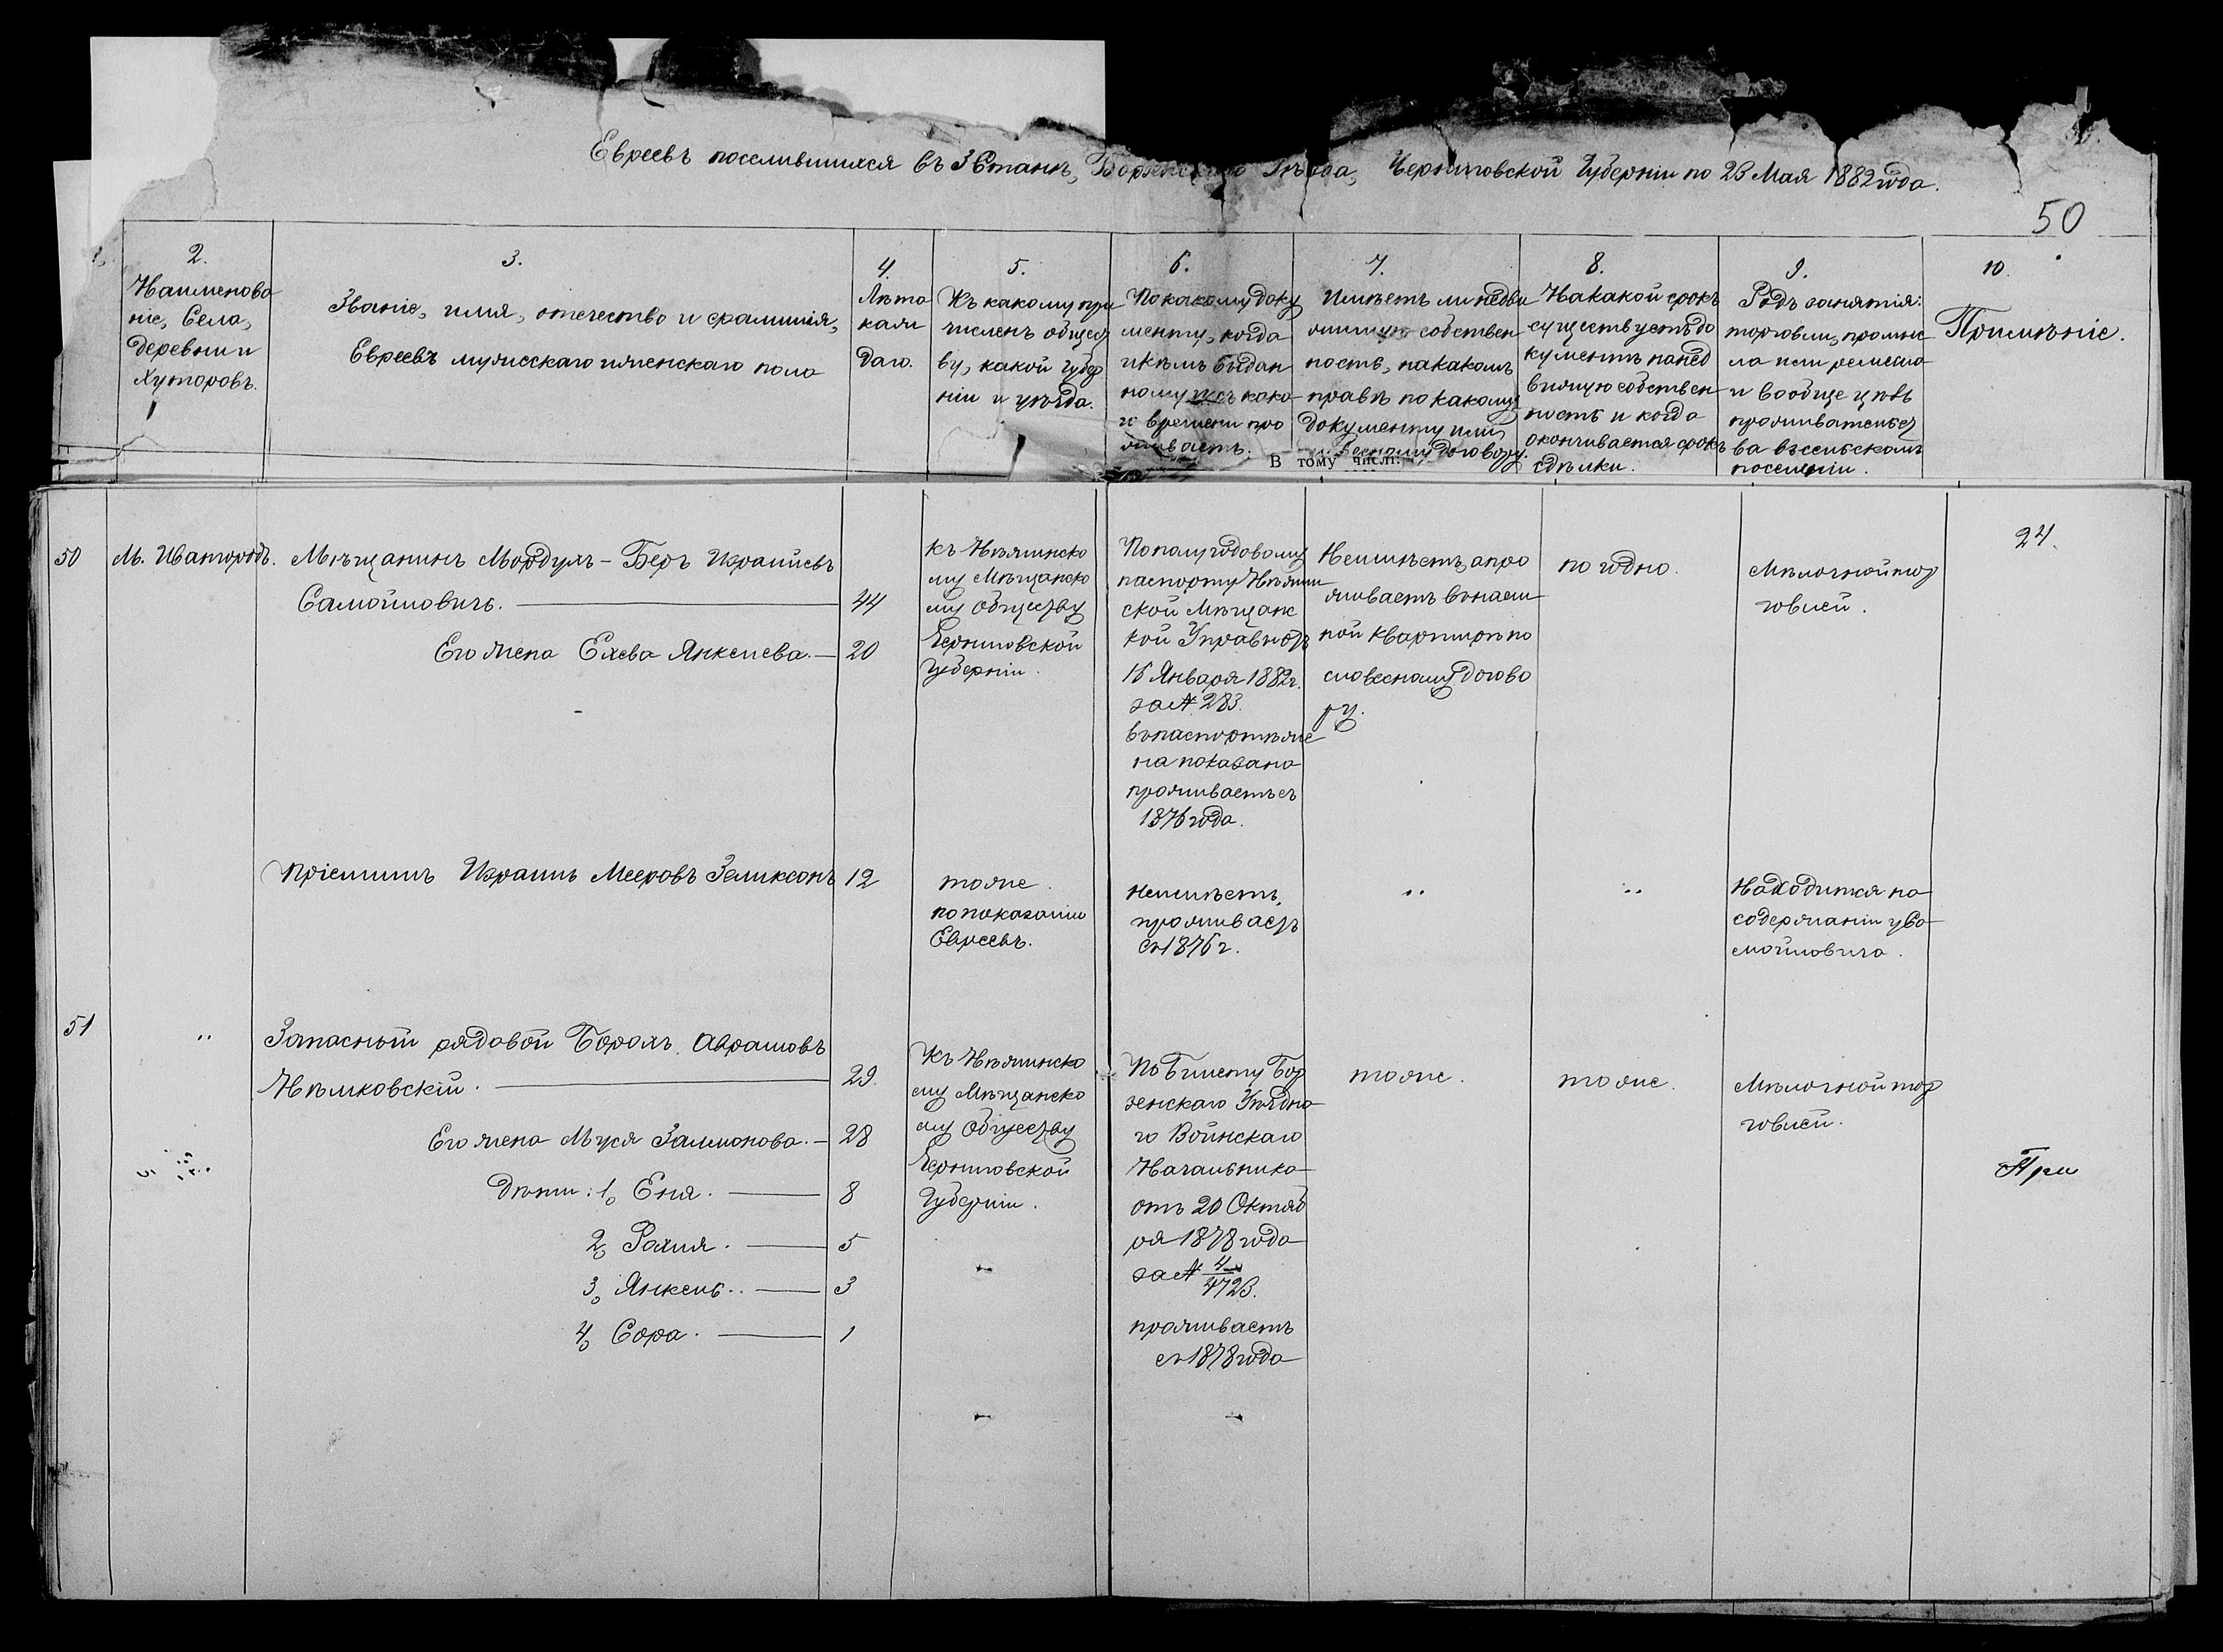 Евреевъ поселившихся въ 3 Станѣ, Борзенскаго Уѣзда, Черниговской Губерніи по 23 Мая 1882 года.
50
2.
Наименова
ніе, Села,
деревни и
Хуторовъ.
3.
Званіе, имя, отечество и фамилія,
Евреевъ мужескаго и женскаго пола
4.
Лѣта
кажд
даго.
5.
Къ какому при
численъ общес
ву, какой Губер
ніи и уѣзда.
6.
По какому доку
менту, когда
и кѣмъ выдан
ному и съ како
го времени про
живаетъ.
7.
Имѣетъ ли недви
жимую собствен
ность, на какомъ
правѣ по какому
документу или
словесному договору.
В тому числі:
8.
На какой срокъ
существуетъ до
кументъ на нед
вижую собствен
ность и когда
оканчивается срокъ
сдѣлки.
9.
Родъ занятія:
торговли, промыс
ла или ремесла
и вообще цѣль
прожительст
ва въ сельскомъ
поселеніи.
10.
Примѣніе.
24.
50
М. Ивангородъ.
Мѣщанинъ Мордухъ-Беръ Израилевъ
Самойловичъ.
44
Его жена Ехева Янкелева.
20
Къ Нѣжинско
му Мѣщанско
му Обществу
Черниговской
Губерніи.
По полугодовому
паспорту Нѣжин
ской Мѣщанс
кой Управы отъ
15 Января 1882 г.
за № 283.
въ паспортѣ же
на показана
проживаетъ съ
1876 года.
Неимѣетъ, а про
живаетъ въ наем
ной квартирѣ по
словесному догово
ру.
по годно.
Мѣлочной тор
говлей.
Пріемышъ Израиль Мееровъ Зеликсонъ
12
тоже.
по показанію
Евреевъ.
Неимѣетъ,
проживаетъ
съ 1876 г.
"
"
Находится на
содержаніи у Са
мойловича.
51
"
Запасный рядовой Борохъ Аврамовъ
Нѣмковскій.
29.
Его жена Муся Залманова.
28
Дѣти: 1, Еня.
8
2, Рахля.
5
3, Янкель.
3
4, Сора.
1
Къ Нѣжинско
му Мѣщанско
му Обществу
Черниговской
Губерніи.
По Билету Бор
зенскаго Уѣздна
го Воинскаго
Начальника
отъ 20 Октяб
ря 1878 года
за № 4/4723.
проживаетъ
съ 1878 года
тоже.
тоже.
Мѣлочной тор
говлей.
При